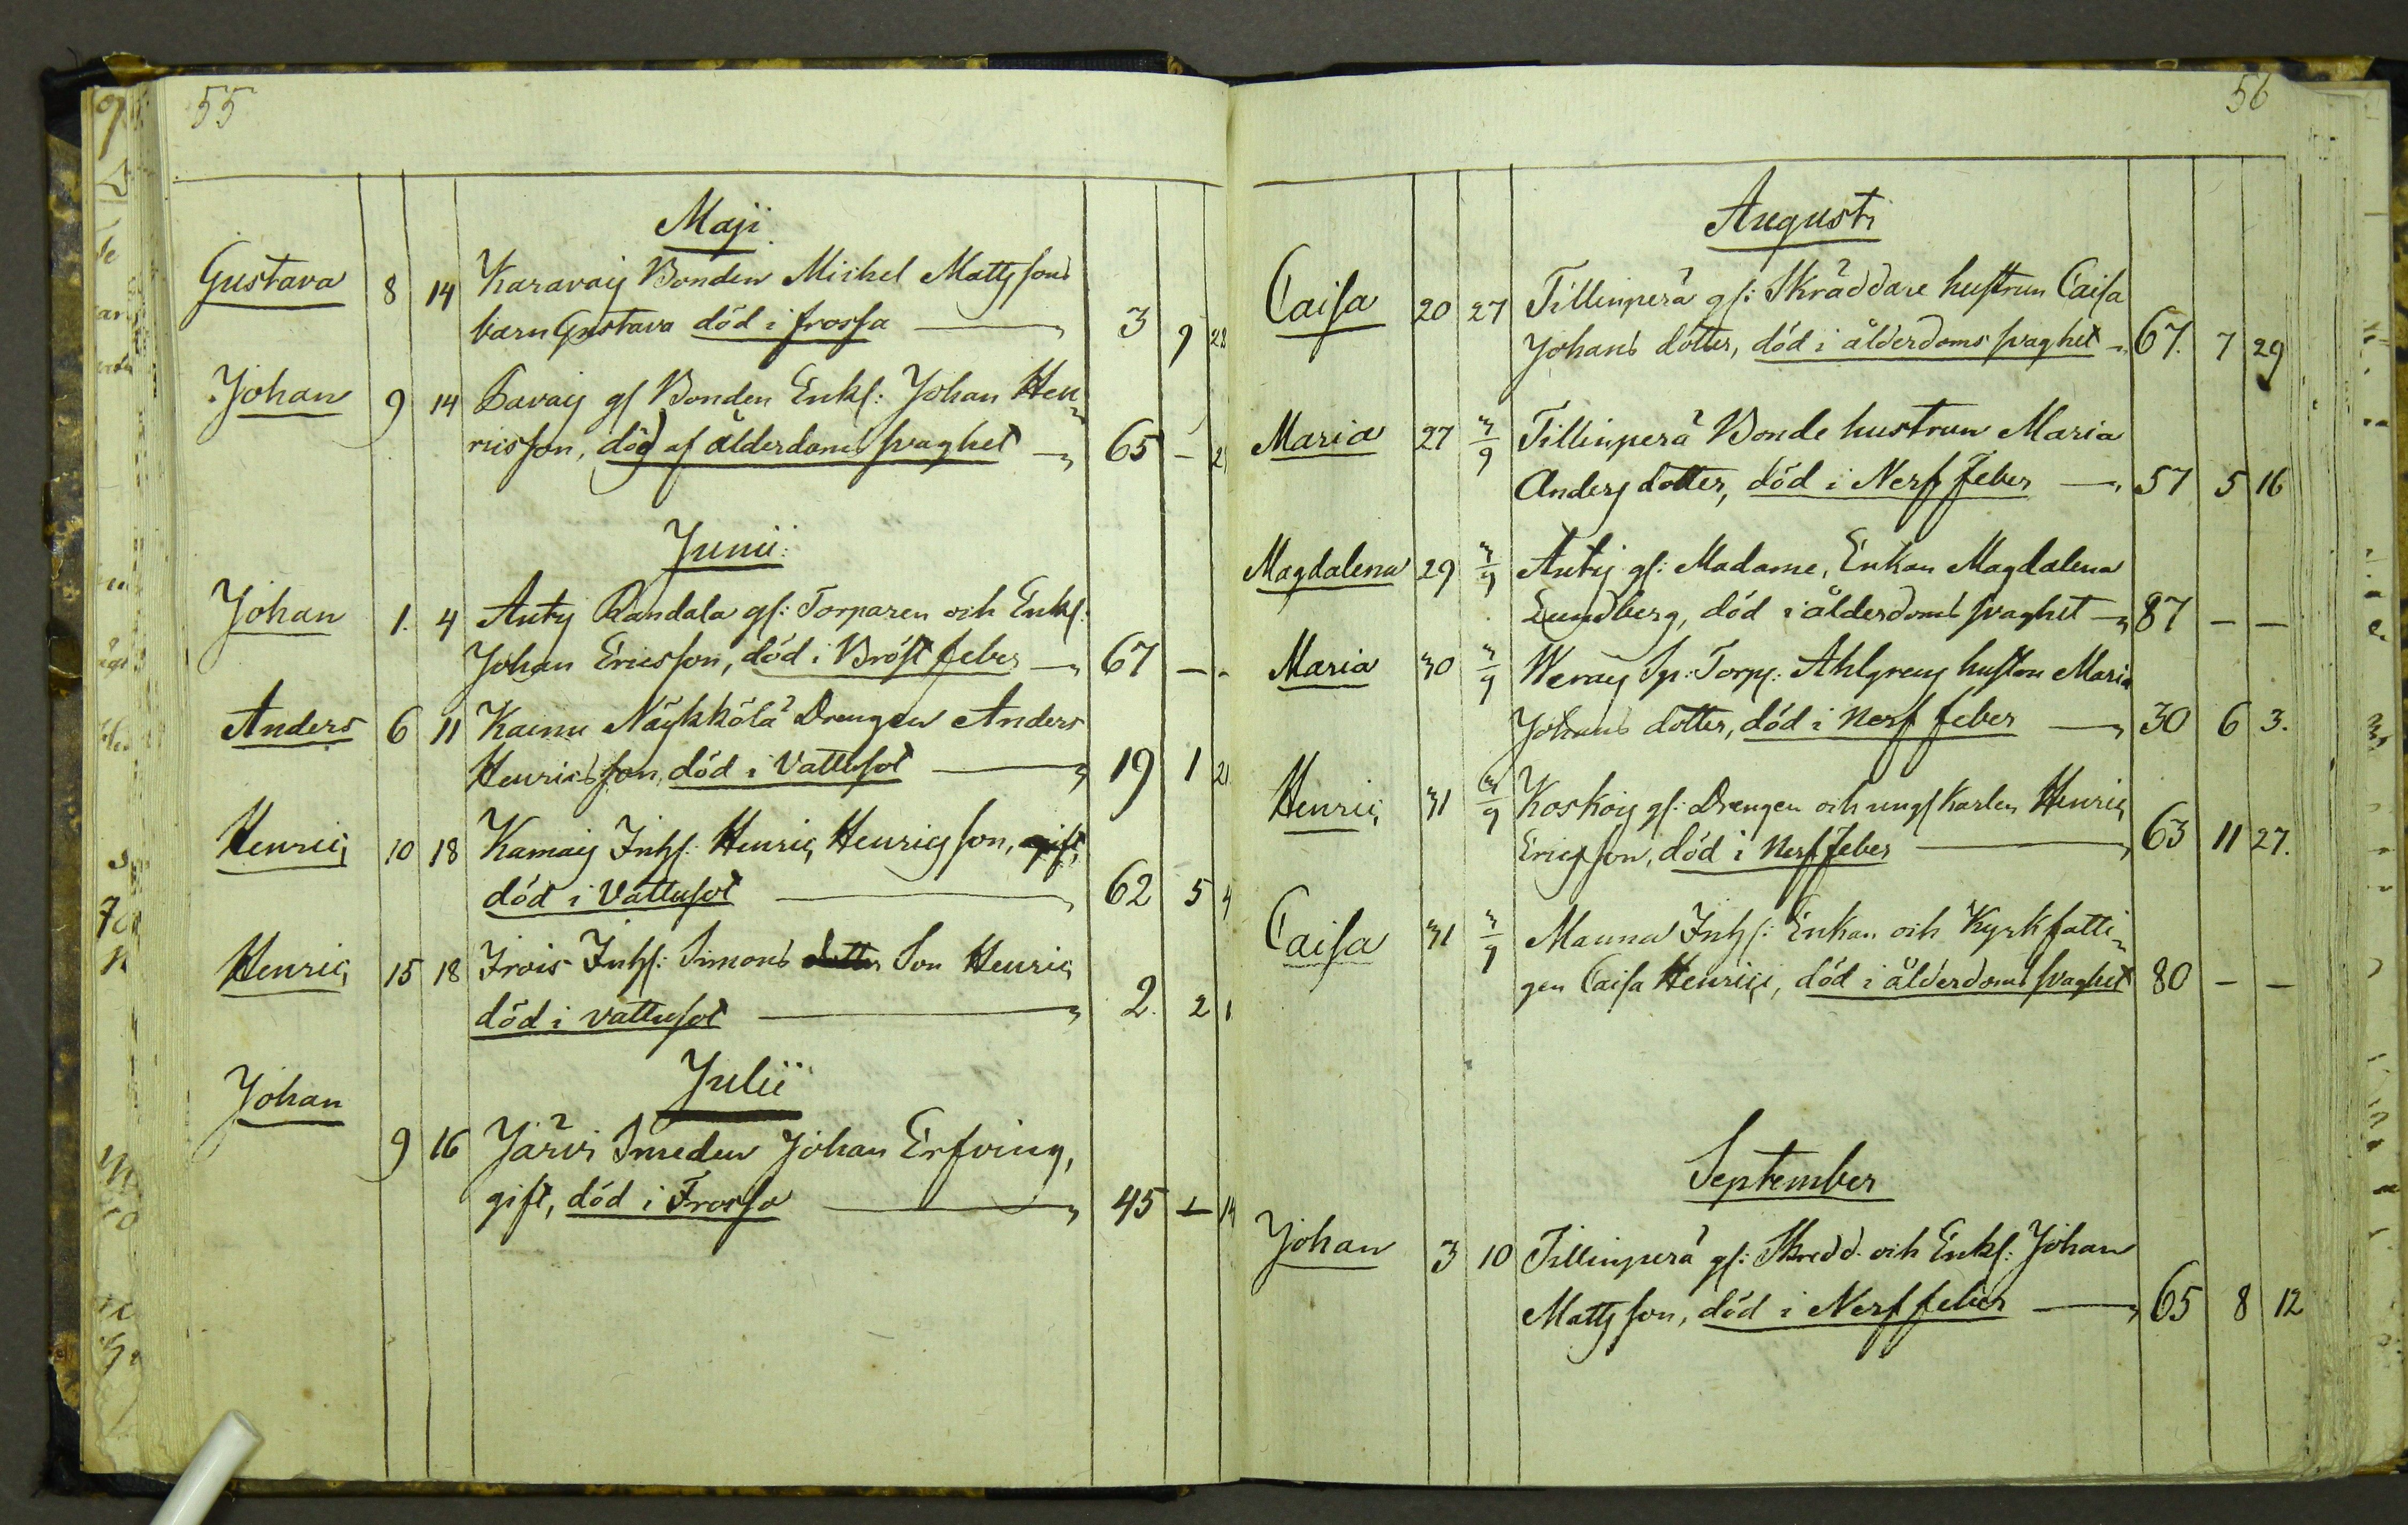 55
Maji
Gustava 8 14 Karavaig Bonden Michel Mattssons
barn Gustava död i frossa 3 9 28
Johan 9 14 Savaig gl Bonden Enkl: Johan Hen=
ricsson, död af ålderdoms svaghet 65 - 21
Junii:
Johan 1. 4 Anty Randala gl: Torparen och Enkl:
Johan Ericsson, död i Bröst feber 67 - -
Anders 6 11 Kainu Näykkölä Drengen Anders
Henricsson, död i Vattusot 19 1 21
Henric 10 18 Kamaig Inhs: Henric Henricsson,
död i Vattusot 62 5 4
Henric 15 18 Frois Inhs: Simons dotter Son Henric
död i vattusot 2. 2 1
Julii
Johan
9 16 Järvi Smeden Johan Erfving,
gift, död i Frossa 45 - 14
56
Augusti
Caisa 20 27 Tillinperä gl: Skräddare hustrun Caisa
Johans dotter, död i ålderdoms svaghet 67. 7 29
Maria 27 3/9 Tillinperä Bonde hustrun Maria
Anders dotter, död i Nerf Feber 57 5 16
Magdalena 29 3/9 Antig gl: Madame, Enkan Magdalena
Lundberg, död i ålderdoms svaghet 87 - -
Maria 30 3/9 Weraig Sp: Torp: Ahlgrens hustru Maria
Johans dotter, död i Nerf feber 30 6 3.
Henric 31 3/9 Koskoig gl: Drengen och ungs Karlen Henric
Ericsson, död i Nerf Feber 63 11 27.
Caisa 31 3/9 Mauna Inhs: Enkan och Kyrkfatti=
gen Caisa Henrici, död i ålderdoms svaghet 80 - -
September
Johan 3 10 Tillinperä gl: Skredd. och Enkl: Johan
Mattsson, död i Nerf feber 65 8 12